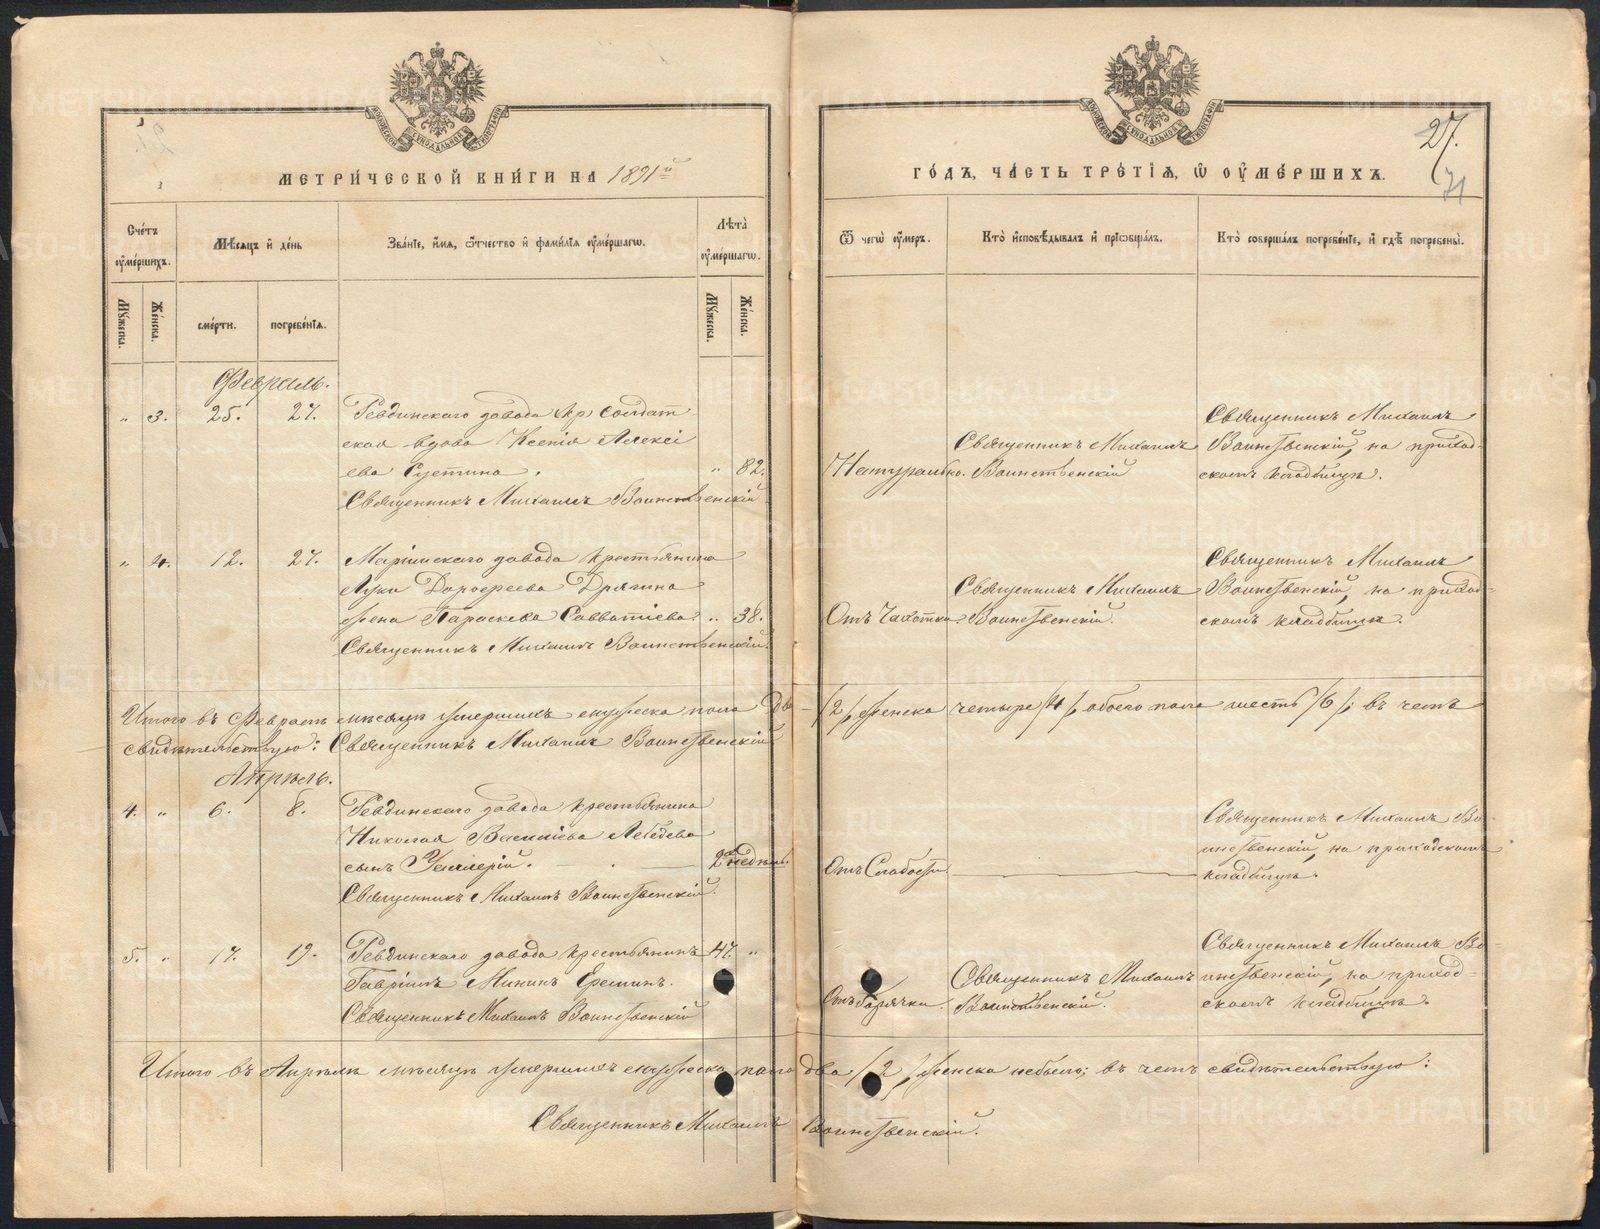 МЕТРИ́ЧЕСКОЙ КНИ́ГИ НА 1891й
ГО́ДЪ, ЧА́СТЬ ТРЕ́ТІѦ, Ѿ ОУМЕ́РШИХЪ.
27.
71
Сче́тъ оуме́ршихъ.
Мѣ́сяцъ и де́нь
Зва́ніе, и́мя, ѻ́тчество и фами́лія оуме́ршагѡ.
Лѣ́та оуме́ршагѡ.
Ѿ чегѡ̀ оу́меръ.
Кто̀ исповѣ́дывалъ и пріѡбща́лъ.
Кто̀ соверша́лъ погребе́ніе, и гдѣ̀ погребены̀.
Му́жеска.
Же́нска.
сме́рти.
погребе́нія.
Му́жеска.
Же́нска.
Февраль.
„ 3. 25. 27.
Ревдинскаго завода кр. солдат
ская вдова Ксенія Алексі
ева
„ 82.
Священникъ Михаилъ Воинственскій
Натурально.
Священникъ Михаилъ
Воинственскій
Священникъ Михаилъ
Воинственскій, на приход-
скомъ кладбищѣ.
„ 4. 12. 27.
Маріинскаго завода крестьянина
Луки Дорофеева Дрягина
жена Параскева Савватіева
„ 38.
Священникъ Михаилъ Воинственскій
Отъ Чахотки.
Священникъ Михаилъ
Воинственскій.
Священникъ Михаилъ
Воинственскій, на приход-
скомъ кладбищѣ.
Итого въ Февралѣ мѣсяцѣ умершихъ мужеска пола два /2/, женска четыре /4/, обоего пола шесть /6/; въ чемъ
свидѣтельствую: Священникъ Михаилъ Воинственскій
Апрѣль.
4. „ 6. 8.
Ревдинскаго завода крестьянина
Николая Василіева Лебедева
сынъ Валерій.
2 недѣль.
Священникъ Михаилъ Воинственскій.
Отъ Слабости.
Священникъ Михаилъ Во-
инственскій, на приходскомъ
кладбищѣ.
5. „ 17. 19.
Ревдинскаго завода крестьянинъ
Гавріилъ Мининъ Ереминъ.
47. „
Священникъ Михаилъ Воинственскій
Отъ Горячки.
Священникъ Михаилъ
Воинственскій.
Священникъ Михаилъ Во-
инственскій, на приход-
скомъ кладбищѣ.
Итого въ Апрѣлѣ мѣсяцѣ умершихъ мужеска пола два /2/, женска небыло; въ чемъ свидѣтельствую:
Священникъ Михаилъ Воинственскій.
METRIKI.GASO-URAL.RU